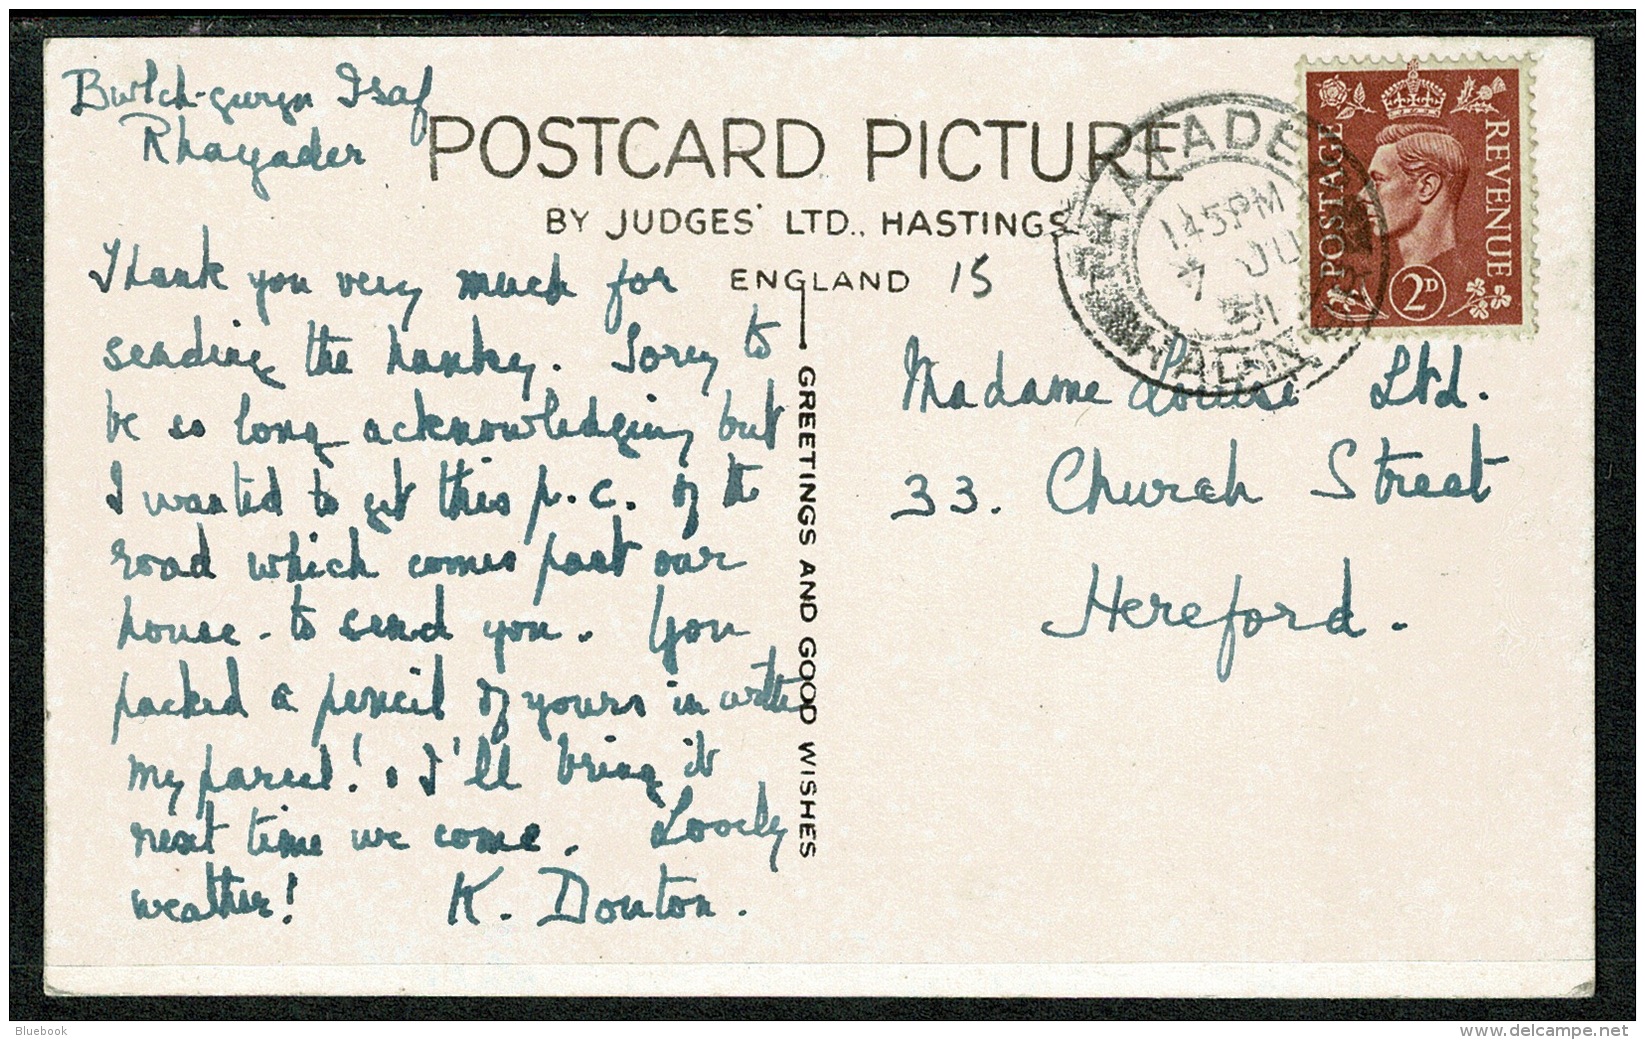 Bwlch-gwyn Isaf
Rhayader
POSTCARD PICTURE
BY JUDGES' LTD., HASTINGS
ENGLAND 15
Thank you very much for
sending the hanky. Sorry to
be so long acknowledging but
I wanted to get this p.c. of the
road which comes past our
house - to send you. You
packed a pencil of yours in with
my parcel! I'll bring it
next time we come. Lovely
weather! K. Douton.
GREETINGS AND GOOD WISHES
Madame Louise Ltd.
33. Church Street
Hereford.
1.45PM
7 JU
51
POSTAGE
REVENUE
2D
Bluebook
www.delcampe.net